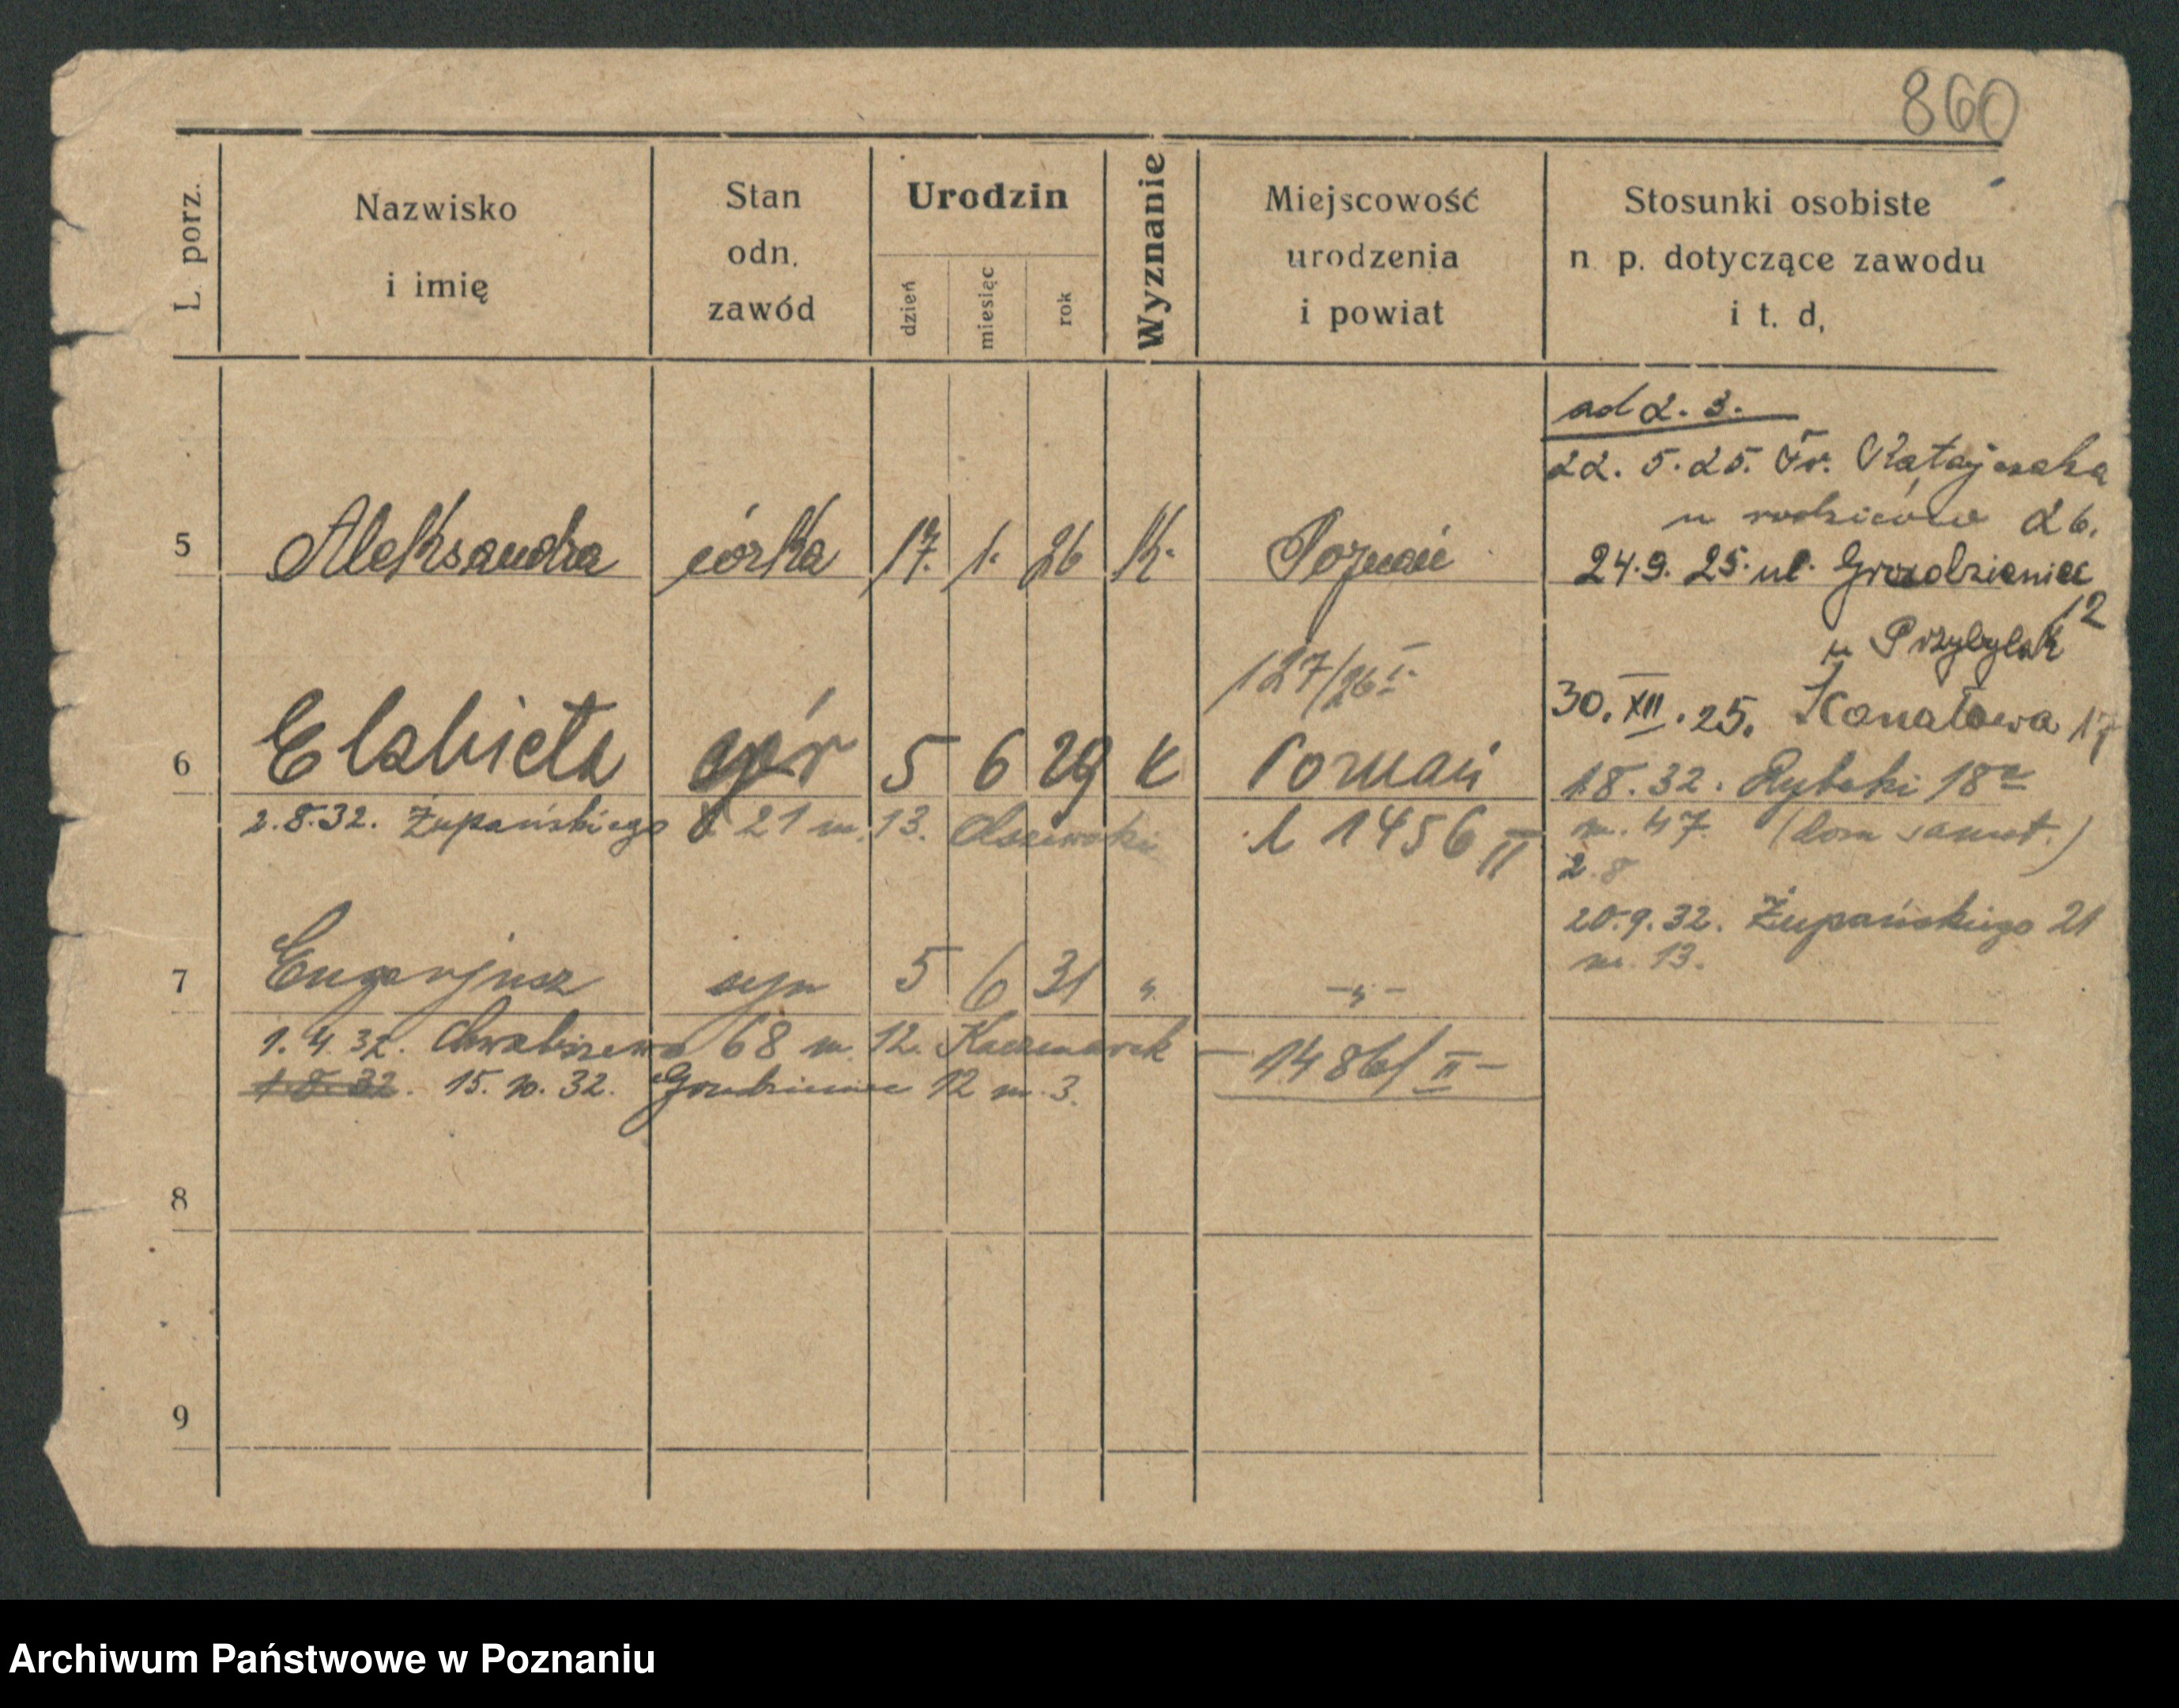 860
L. porz.
Nazwisko
i imię
Stan
odn.
zawód
Urodzin
dzień
miesięc
rok
Wyznanie
Miejscowość
urodzenia
i powiat
Stosunki osobiste
n. p. dotyczące zawodu
i t. d.
ad 2. 3.
22. 5. 25. Fr. Ratajczaka
u rodziców 26.
5 Aleksandra córka 17. 1. 26 K. Poznań
24. 9. 25. ul. Grozdzieniec
12
u Przybylak
127/26 I.
30. XII. 25. Kanałowa 17
6 Elzbieta cór 5 6 29 K Poznań
18. 32. Rybaki 18a
2. 8. 32. Żupańskiego 21 m. 13. Olszewski
L 1456 II
m. 47. (dom samot.)
2. 8
20. 9. 32. Żupańskiego 21
m. 13.
7 Eugenjusz syn 5 6 31 " -"-
1. 4. 32. Chwaliszewo 68 m. 12. Kaczmarek
- 1486/ II -
1. 8. 32. 15. 10. 32. Grudzieniec 12 m. 3.
8
9
Archiwum Państwowe w Poznaniu